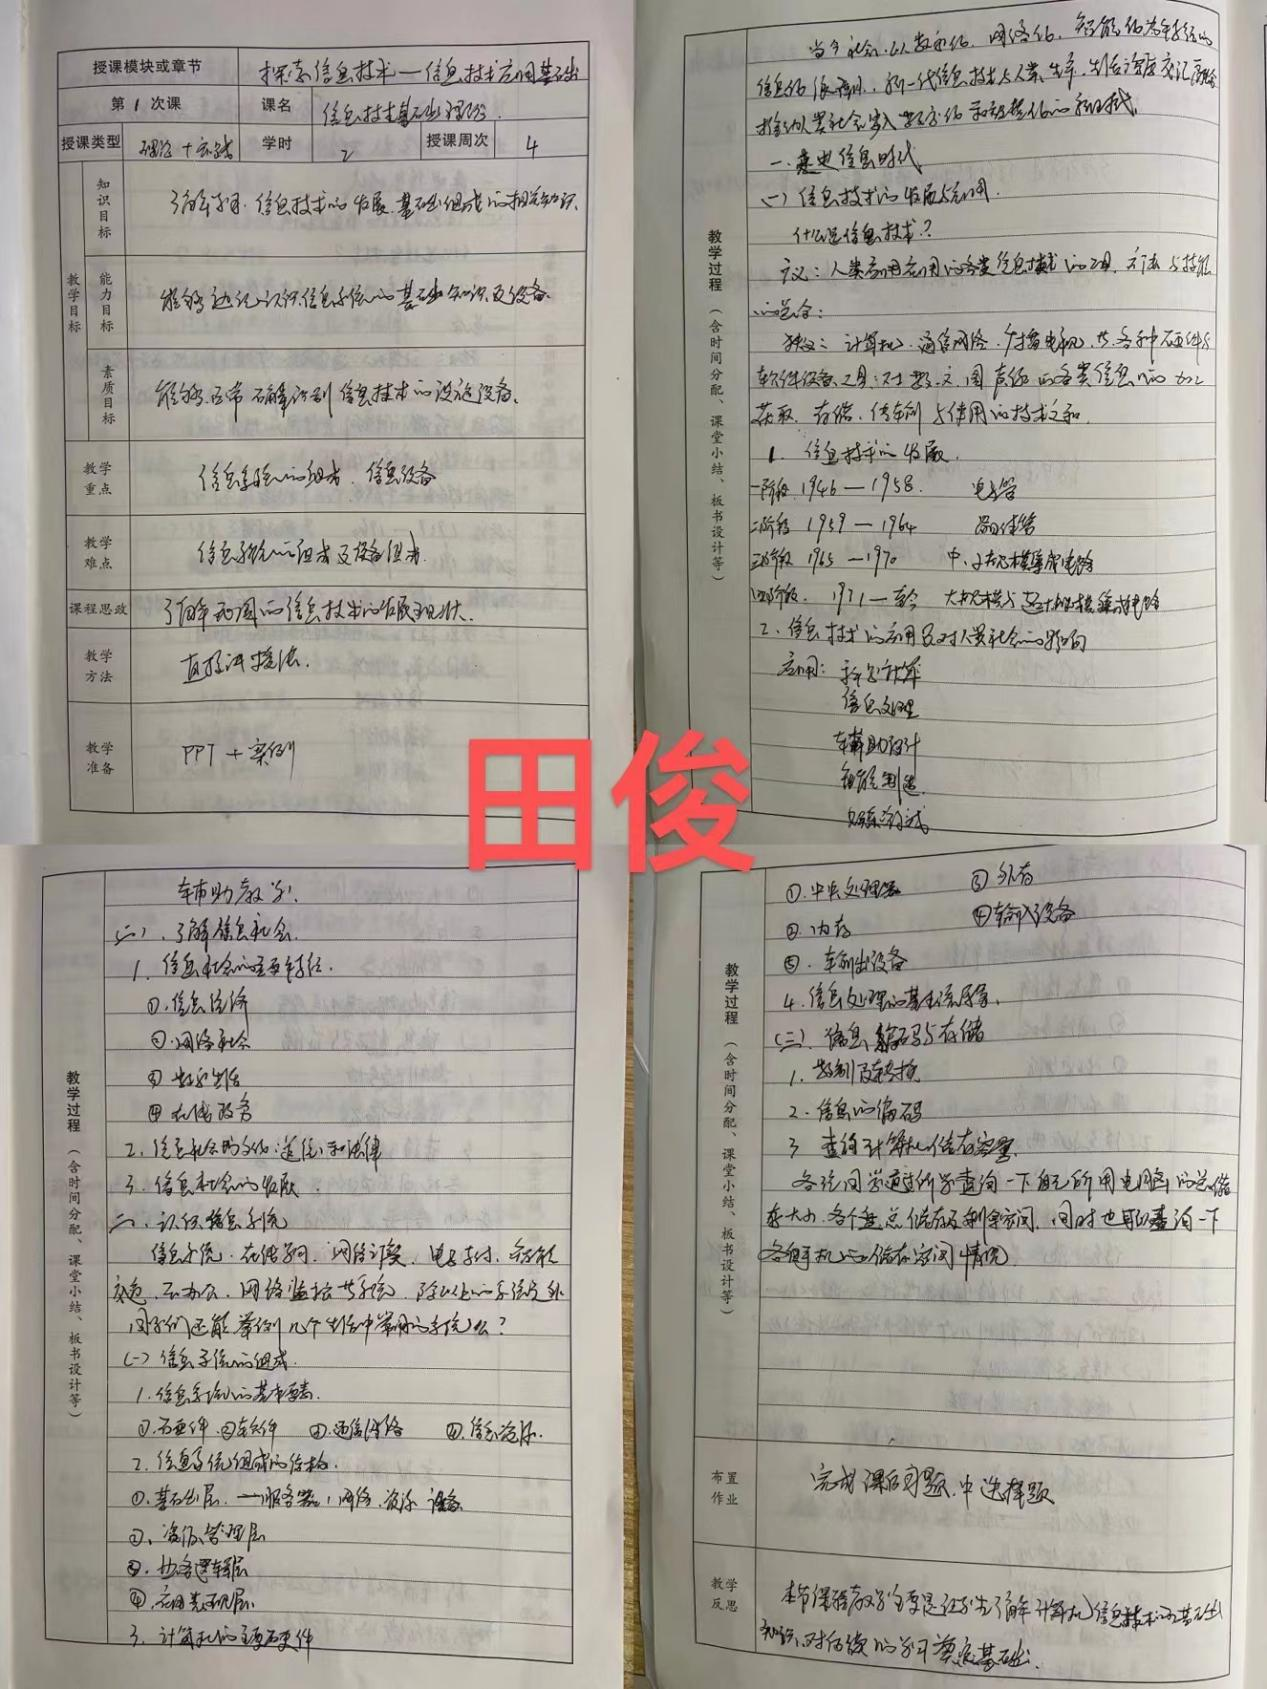 授课模块或章节 探索信息技术—信息技术应用基础
第1次课 课名 信息技术基础理论
授课类型 理论+实践 学时 2 授课周次 4
教学目标
知识目标 了解学习信息技术的发展、基础组成的相关知识.
能力目标 能够 认识信息系统的基础知识及设备.
素质目标 能够正常 识别信息技术的设施设备.
教学重点 信息系统的组成、信息设备
教学难点 信息系统的组成及设备组成.
课程思政 了解我国的信息技术的发展现状.
教学方法 直接讲授法.
教学准备 PPT+案例
教学过程（含时间分配、课堂小结、板书设计等）
当今社会,以数字化、网络化、智能化为特征的
信息化浪潮 ,新一代信息技术与人类生产、生活深度交汇融合
推动人类社会步入数字化和智慧化的新时代.
一.走进信息时代
(一)信息技术的发展与应用.
什么是信息技术?
广义:人类 应用的各类信息技术的工具、方法与技能
的总合:
狭义:计算机、通信网络、广播电视,共各种硬件与
软件设备工具:对数、文、图、声、像的各类信息的加工
获取、存储、传输与使用的技术之和.
1. 信息技术的发展.
一阶段 1946—1958. 电子管
二阶段 1959—1964 晶体管
三阶段 1965—1970 中、小规模集成电路
四阶段. 1971—至今 大规模与超大规模集成电路
2、信息技术的应用及对人类社会的影响
应用: 科学计算
信息处理
辅助设计
智能制造
田俊
教学过程（含时间分配、课堂小结、板书设计等）
辅助教学.
(二).了解信息社会.
1. 信息社会的主要特征.
①.信息经济
②.网络社会
③ 数字生活
④ 在线政务
2. 信息社会的文化、道德和法律
3. 信息社会的发展.
二、认识信息系统
信息系统.在线学习、网络订票、电子支付、智能
交通、云办公、网络监控共系统,除以上的系统之外
同学们还能举例几个生活中常用的系统么?
(一)信息系统的组成.
1.信息系统的基本要素.
①.硬件 ②软件 ③.通信网络 ④.信息资源.
2.信息系统组成的结构.
①.基础层.—服务器、网络、资源 设备
②.资源管理层
③.业务逻辑层
④.应用表现层.
3、计算机的主要硬件
教学过程（含时间分配、课堂小结、板书设计等）
①.中央处理器 ③外存
②.内存 ④输入设备
⑤.输出设备
4.信息处理的基本流程.
(三).信息编码与存储
1. 数制及转换
2.信息的编码
3 查询计算机储存容量.
各位同学通过所学查询一下自己所用电脑的总储
存大小、各个盘总储存及剩余空间,同时也可以查询一下
各自手机的储存空间情况
布置作业 完成课后习题.中选择题
教学反思 本节课程教学主要是让学生了解计算机信息技术的基础
知识,对后续的学习奠定基础.